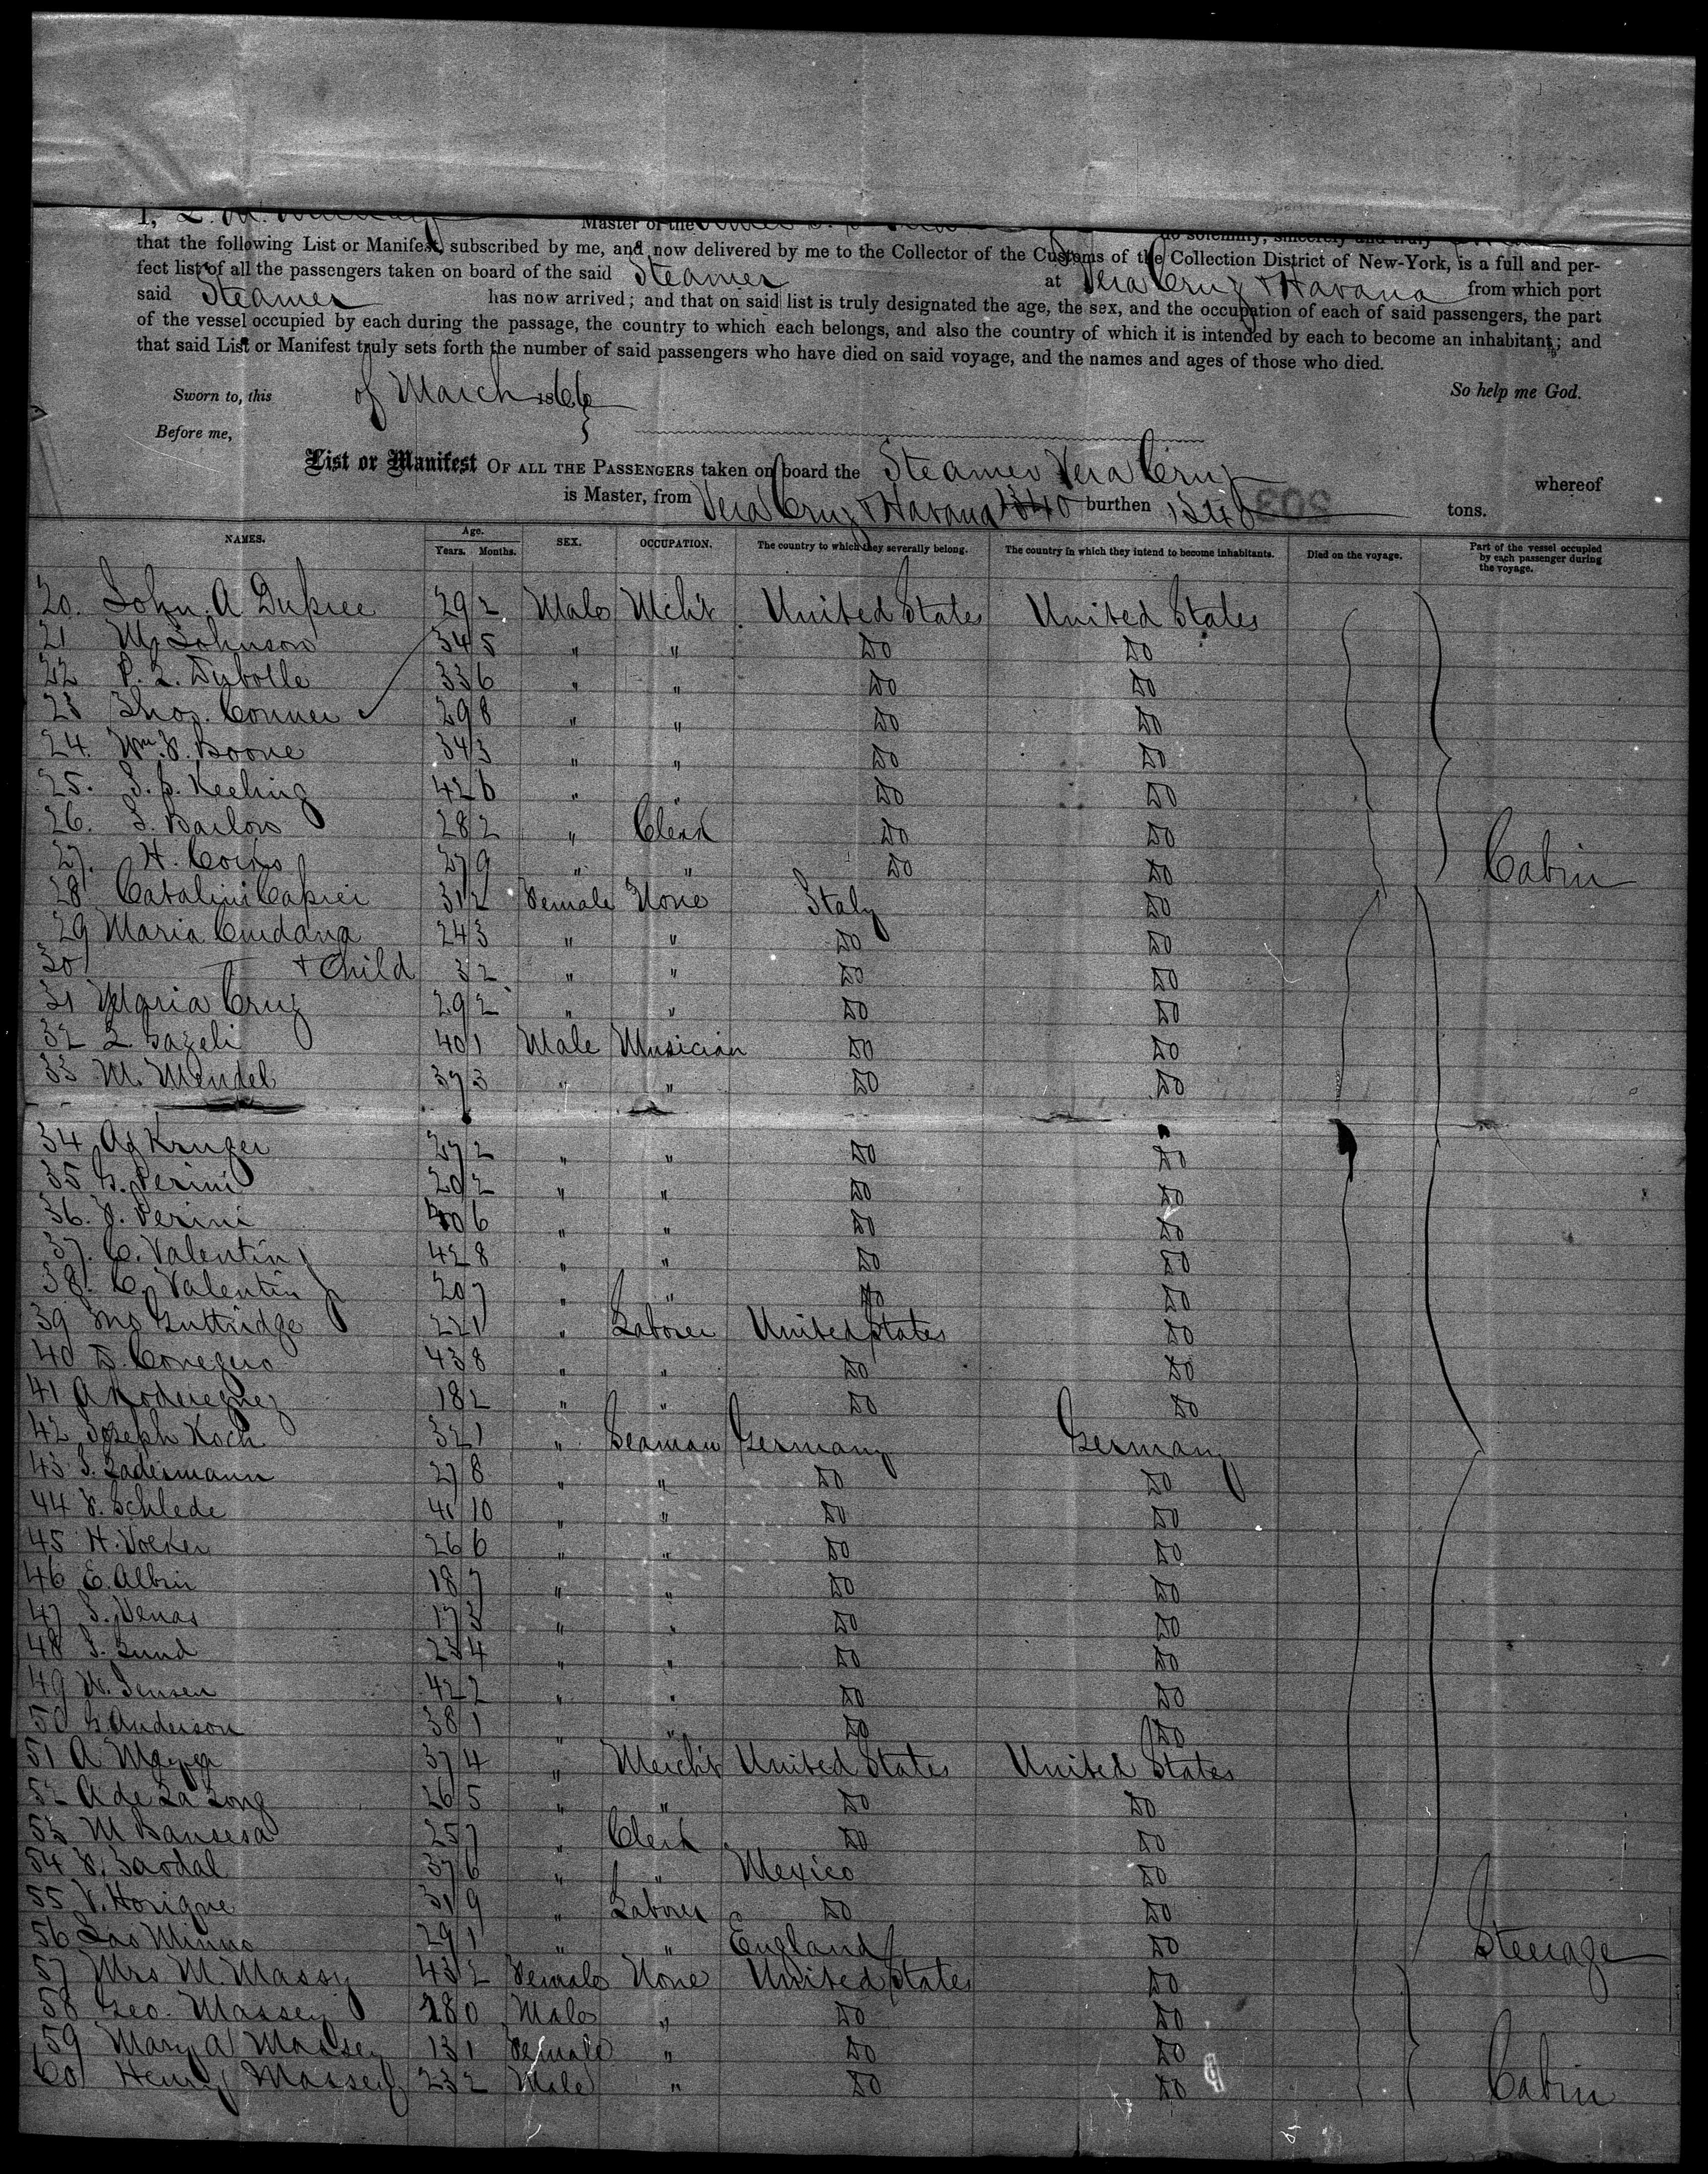 I, Master of the do solemnly, sincerely and truly
that the following List or Manifest, subscribed by me, and now delivered by me to the Collector of the Customs of the Collection District of New-York, is a full and per-
fect list of all the passengers taken on board of the said Steamer at Vera Cruz & Havana from which port
said Steamer has now arrived; and that on said list is truly designated the age, the sex, and the occupation of each of said passengers, the part
of the vessel occupied by each during the passage, the country to which each belongs, and also the country of which it is intended by each to become an inhabitant; and
that said List or Manifest truly sets forth the number of said passengers who have died on said voyage, and the names and ages of those who died.
Sworn to, this of March 1866 So help me God.
Before me,
List or Manifest OF ALL THE PASSENGERS taken on board the Steamer Vera Cruz whereof
is Master, from Vera Cruz & Havana 1340 burthen 1340 tons.
NAMES. Age. Years. Months. SEX. OCCUPATION. The country to which they severally belong. The country in which they intend to become inhabitants. Died on the voyage. Part of the vessel occupied by each passenger during the voyage.
20. John A Dupree 29 2 Male Mcht United States United States
21 Johnson 34 5 " " Do Do
22 P. L. 33 6 " " Do Do
23 Thos. Conner 29 8 " " Do Do
24. Wm. F. Boone 34 3 " " Do Do
25. Keeling 42 6 " " Do Do
26. Barlow 28 2 " Clerk Do Do
27. H. 27 9 " " Do Do Cabin
28 Caprei 31 2 Female None Italy Do
29 Maria 24 3 " " Do Do
30 + Child 3 2 " " Do Do
31 Maria Cruz 29 2 " " Do Do
32 L 40 1 Male Musician Do Do
33 M. Mendel 37 3 " " Do Do
34 Kruger 27 2 " " Do Do
35 G. Perini 20 2 " " Do Do
36. Perini 40 6 " " Do Do
37. C. Valentin 42 8 " " Do Do
38. C. Valentin 20 7 " " Do Do
39 Guttridge 22 1 " Laborer United States Do
40 D. 43 8 " " Do Do
41 A 18 2 " " Do Do
42 Joseph Koch 32 1 " Seaman Germany Germany
43 Ladermann 27 8 " " Do Do
44 F. Schlede 10 " " Do Do
45 H. Volker 26 6 " " Do Do
46 E. Albin 18 7 " " Do Do
47 17 " " Do Do
48 Lund 23 4 " " Do Do
49 Jensen 42 2 " " Do Do
50 Anderson 38 1 " " Do Do
51 A Mayer 37 4 " Mercht United States United States
52 A de La Long 26 5 " " Do Do
53 M 25 7 " Clerk Do Do
54 37 6 " " Mexico Do
55 V. 31 9 " Laborer Do Do
56 29 1 " " England Do Steerage
57 Mrs M. Massy 43 2 Female None United States Do
58 Geo. Massey 18 0 Male " Do Do
59 Mary A Massey 13 1 Female " Do Do
60 Henry Massey 23 2 Male " Do Do Cabin